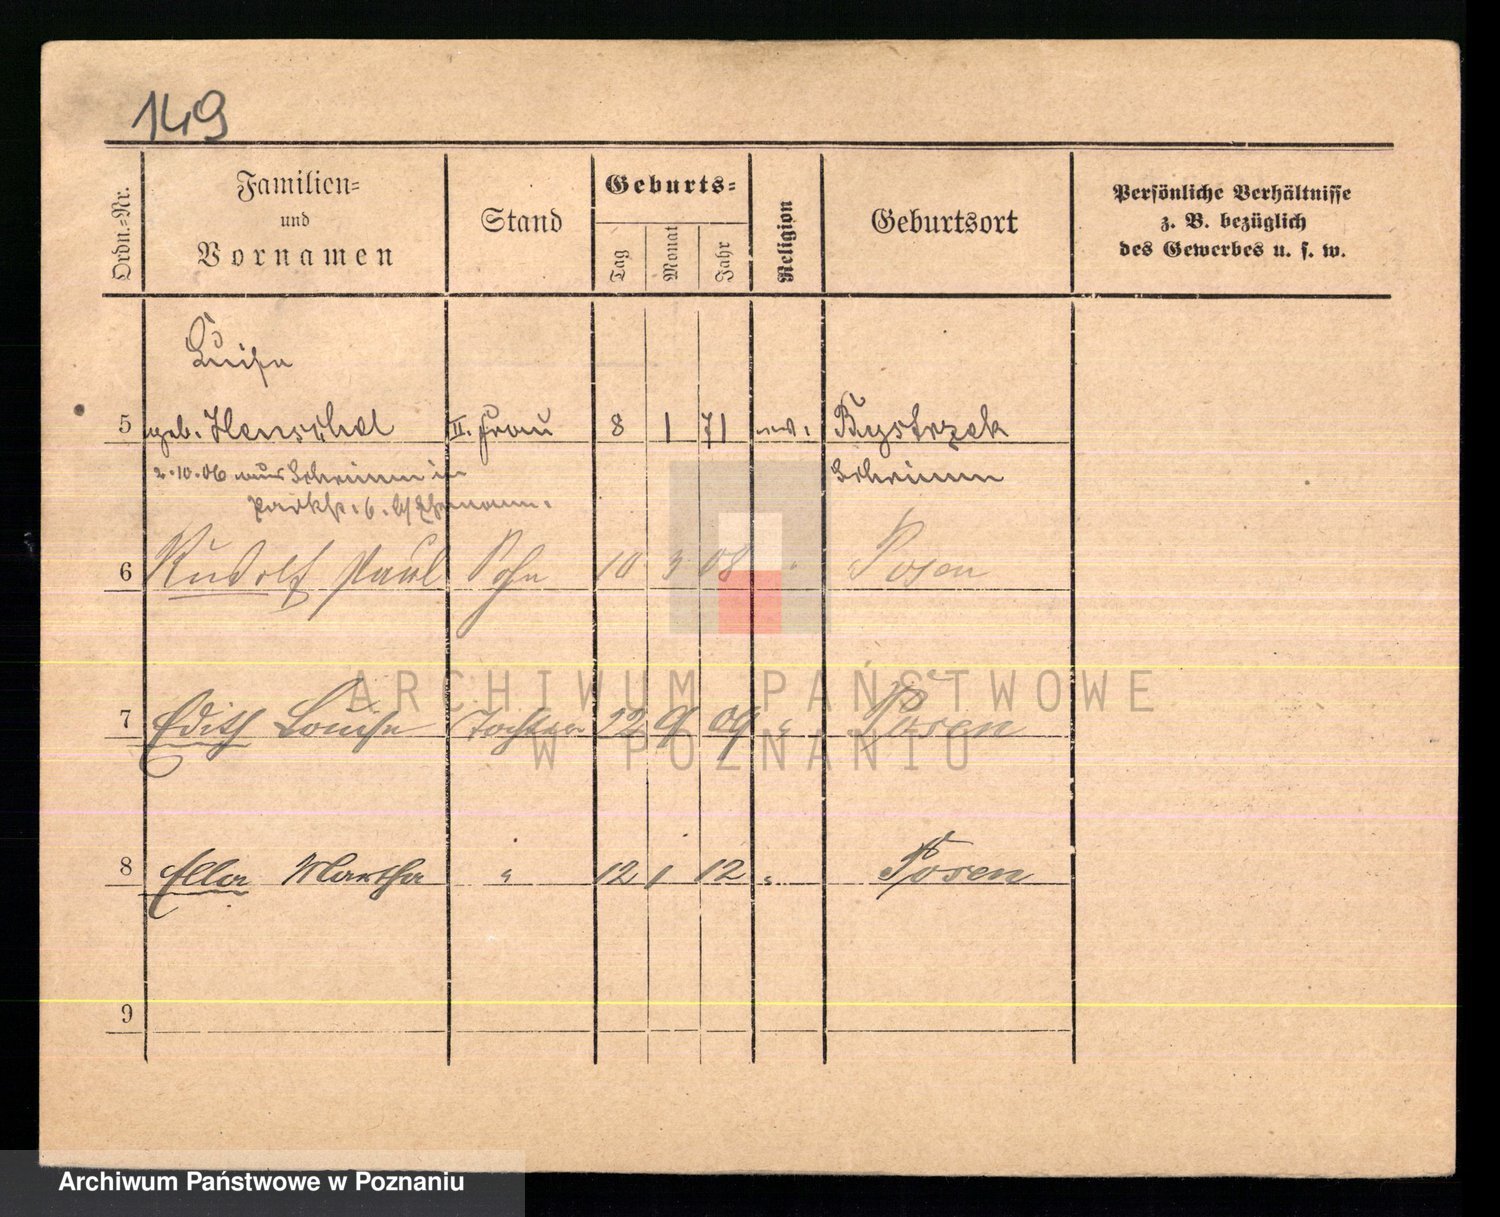 149
Ordn.-Nr.
Familien-
und
Vornamen
Stand
Geburts-
Tag
Monat
Jahr
Religion
Geburtsort
Persönliche Verhältnisse
z. B. bezüglich
des Gewerbes u. s. w.
Luise
5 geb. Henschel II. Frau 8 1 71 ev. Bystrzek
2.10.06 aus Schrimm in Schrimm
Parkstr. 6. b/ Ehemann.
6 Rudolf Paul Sohn 10 3 08 " Posen
7 Edith Louise Tochter 12 9 09 " Posen
8 Ella Martha " 12 1 12 " Posen
9
ARCHIWUM PAŃSTWOWE
W POZNANIU
Archiwum Państwowe w Poznaniu